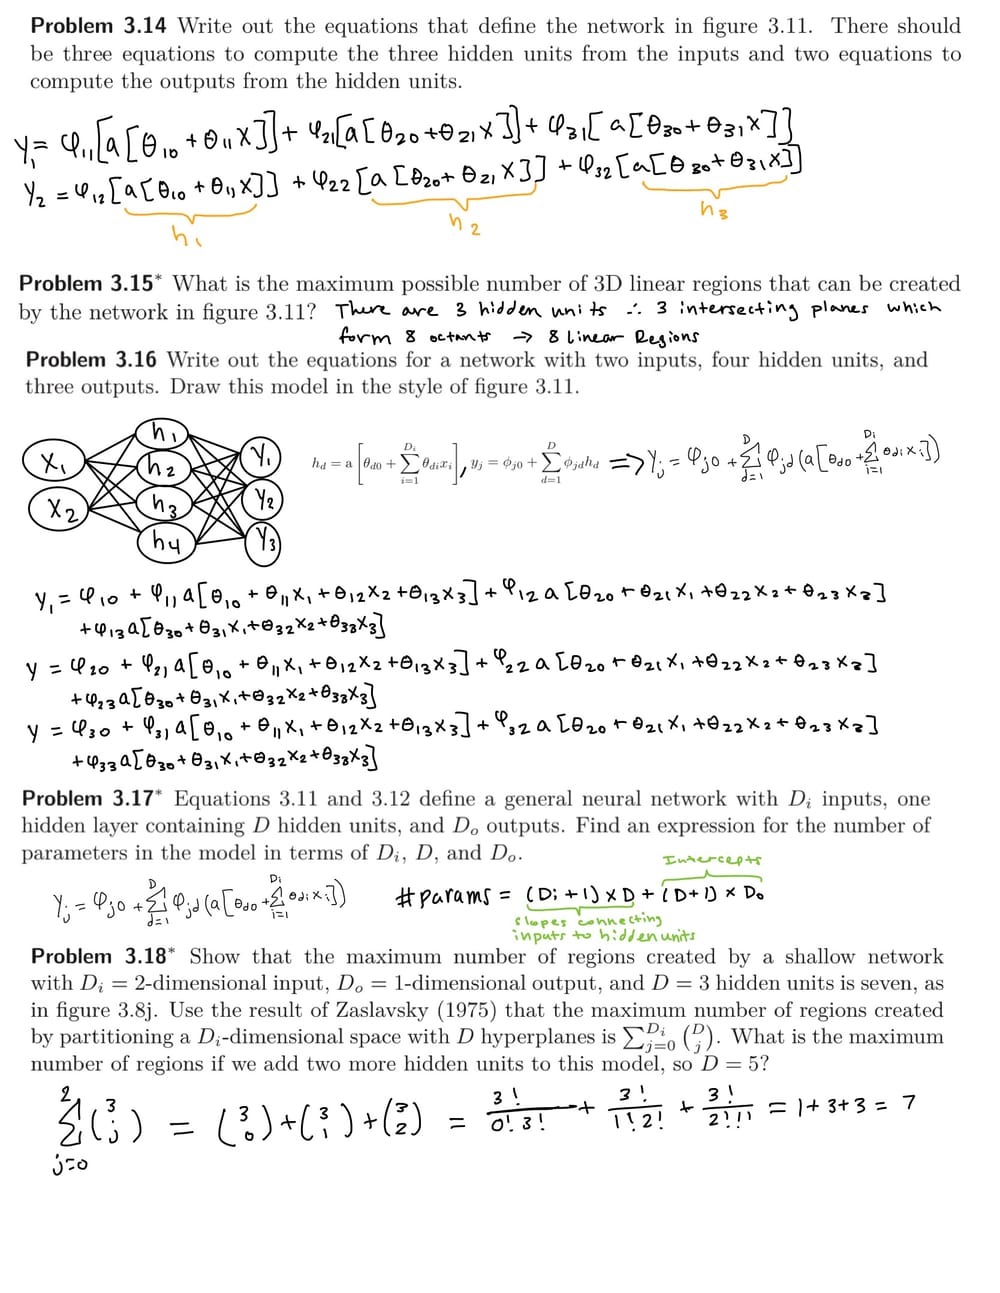 Problem 3.14 Write out the equations that define the network in figure 3.11. There should
be three equations to compute the three hidden units from the inputs and two equations to
compute the outputs from the hidden units.
y₁= φ₁₁[a[θ₁₀+θ₁₁x]]+ φ₂₁[a[θ₂₀+θ₂₁x]]+ φ₃₁[a[θ₃₀+θ₃₁x]]
y₂ = φ₁₂[a[θ₁₀+θ₁₁x]] + φ₂₂[a[θ₂₀+θ₂₁x]] + φ₃₂[a[θ₃₀+θ₃₁x]]
h₁ h₂ h₃
Problem 3.15* What is the maximum possible number of 3D linear regions that can be created
by the network in figure 3.11? There are 3 hidden units ∴ 3 intersecting planes which
form 8 octants → 8 linear Regions
Problem 3.16 Write out the equations for a network with two inputs, four hidden units, and
three outputs. Draw this model in the style of figure 3.11.
x₁ x₂ h₁ h₂ h₃ h₄ y₁ y₂ y₃
h_d = a[θ_d0 + ∑_{i=1}^{D_i} θ_di x_i], y_j = φ_j0 + ∑_{d=1}^{D} φ_jd h_d => y_j = φ_j0 + ∑_{d=1}^{D} φ_jd(a[θ_d0 + ∑_{i=1}^{D_i} θ_di x_i])
y₁ = φ₁₀ + φ₁₁a[θ₁₀+θ₁₁x₁+θ₁₂x₂+θ₁₃x₃]+φ₁₂a[θ₂₀+θ₂₁x₁+θ₂₂x₂+θ₂₃x₃]
+φ₁₃a[θ₃₀+θ₃₁x₁+θ₃₂x₂+θ₃₃x₃]
y = φ₂₀ + φ₂₁a[θ₁₀+θ₁₁x₁+θ₁₂x₂+θ₁₃x₃]+φ₂₂a[θ₂₀+θ₂₁x₁+θ₂₂x₂+θ₂₃x₃]
+φ₂₃a[θ₃₀+θ₃₁x₁+θ₃₂x₂+θ₃₃x₃]
y = φ₃₀ + φ₃₁a[θ₁₀+θ₁₁x₁+θ₁₂x₂+θ₁₃x₃]+φ₃₂a[θ₂₀+θ₂₁x₁+θ₂₂x₂+θ₂₃x₃]
+φ₃₃a[θ₃₀+θ₃₁x₁+θ₃₂x₂+θ₃₃x₃]
Problem 3.17* Equations 3.11 and 3.12 define a general neural network with D_i inputs, one
hidden layer containing D hidden units, and D_o outputs. Find an expression for the number of
parameters in the model in terms of D_i, D, and D_o.
Intercepts
y_j = φ_j0 + ∑_{d=1}^{D} φ_jd(a[θ_d0 + ∑_{i=1}^{D_i} θ_di x_i]) #params = (D_i+1)×D + (D+1)×D_o
slopes connecting
inputs to hidden units
Problem 3.18* Show that the maximum number of regions created by a shallow network
with D_i = 2-dimensional input, D_o = 1-dimensional output, and D = 3 hidden units is seven, as
in figure 3.8j. Use the result of Zaslavsky (1975) that the maximum number of regions created
by partitioning a D_i-dimensional space with D hyperplanes is ∑_{j=0}^{D_i} (D j). What is the maximum
number of regions if we add two more hidden units to this model, so D = 5?
∑_{j=0}^{2} (3 j) = (3 0)+(3 1)+(3 2) = 3!/0!3! + 3!/1!2! + 3!/2!1! = 1+3+3 = 7